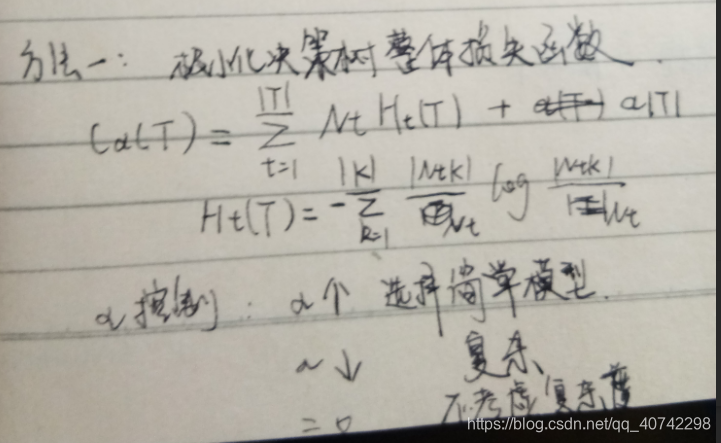 方法一: 极小化决策树整体损失函数.
Cα(T) = |T| Σ t=1 Nt Ht(T) + α|T|
Ht(T) = - |K| Σ k=1 |Ntk| / Nt log |Ntk| / Nt
α控制: α↑ 选择简单模型.
α↓ 复杂
=0 不考虑复杂度
https://blog.csdn.net/qq_40742298